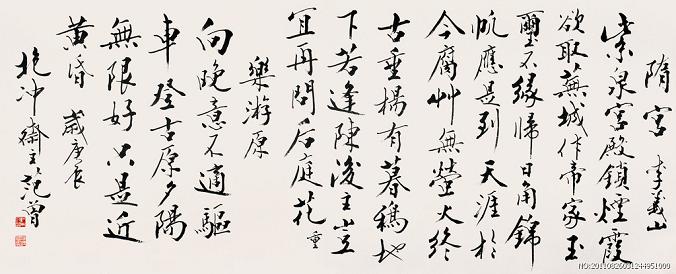 隋宮 李義山
紫泉宮殿鎖煙霞
欲取蕪城作帝家玉
璽不緣歸日角錦
帆應是到天涯於
今腐艸無螢火終
古垂楊有暮鴉地
下若逢陳後主豈
宜再問后庭花 重
樂游原
向晚意不適驅
車登古原夕陽
無限好只是近
黃昏 歲庚辰
抱沖齋主范曾
NO:20110826031244951000